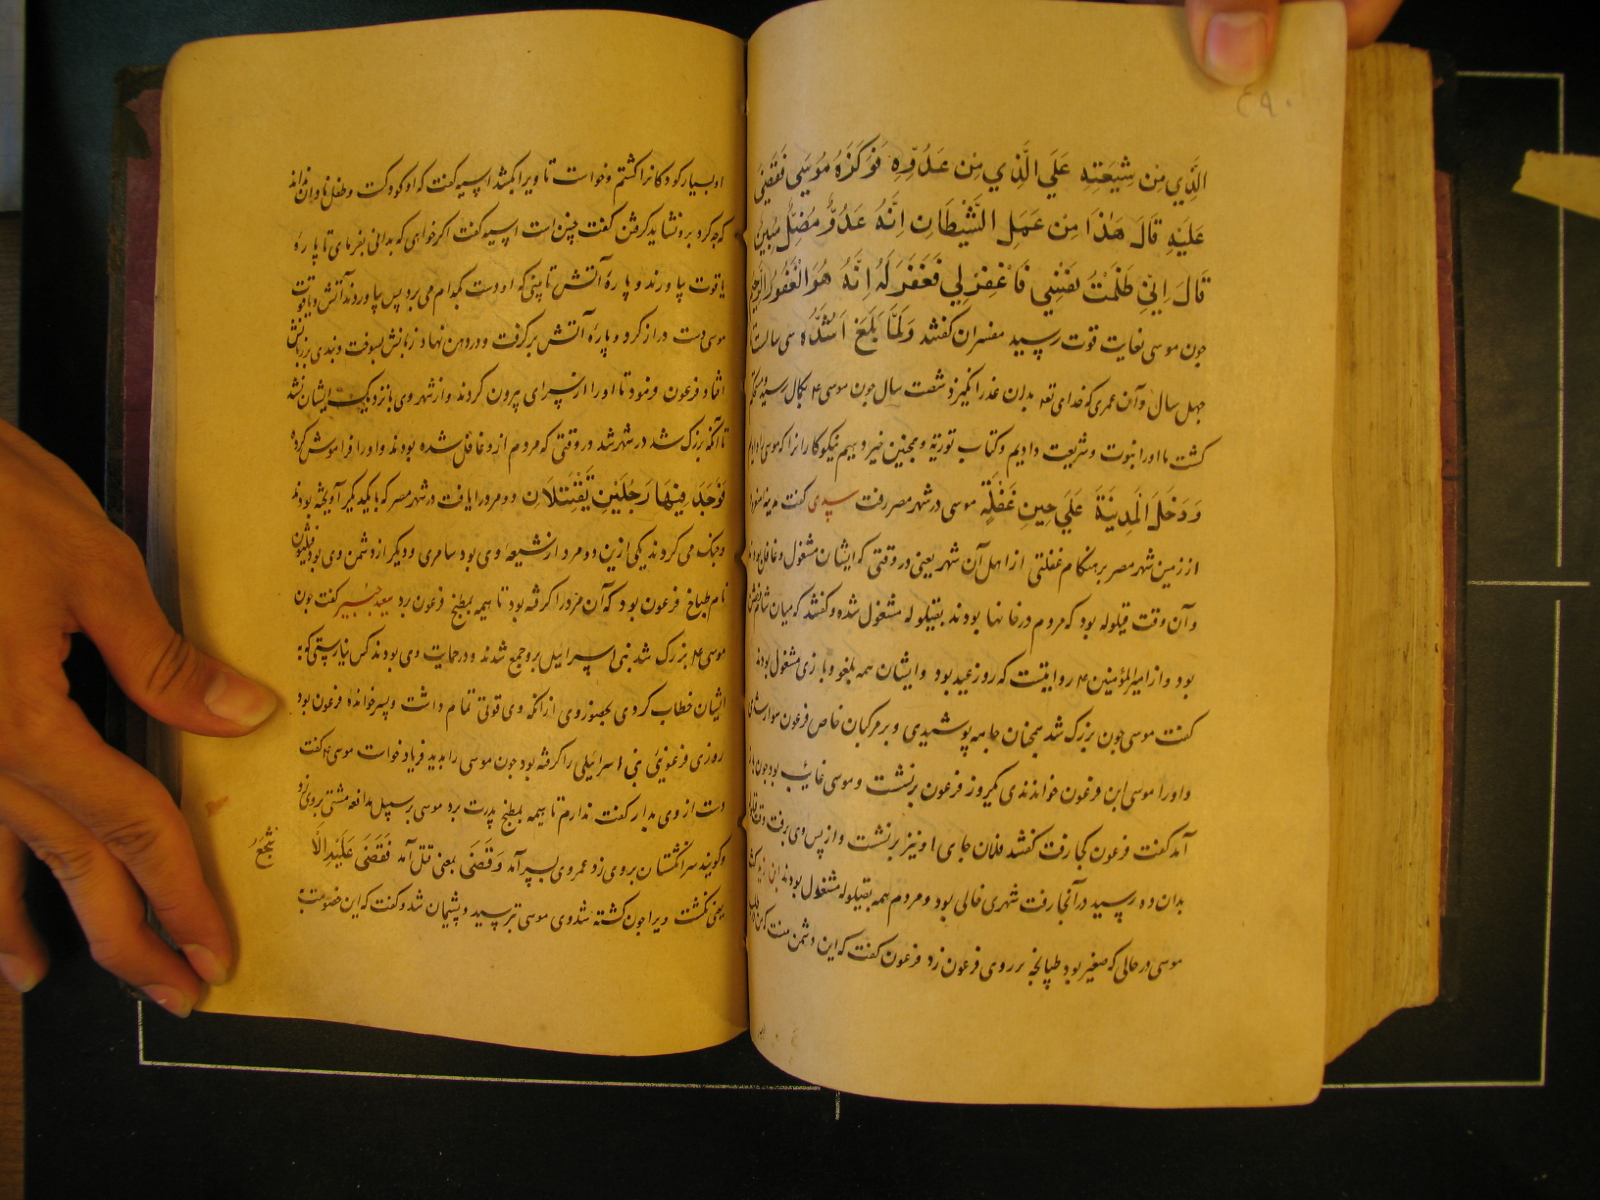 ٤٩٠
الَّذِي مِن شِيعَتِهِ عَلَي الَّذِي مِن عَدُوِّهِ فَوَكَزَهُ مُوسَي فَقَضَي
عَلَيْهِ قَالَ هٰذَا مِن عَمَلِ الشَّيْطَانِ اِنَّهُ عَدُوٌّ مُضِلٌّ مُبِينٌ
قَالَ اِنِّي ظَلَمْتُ نَفْسِي فَاغْفِرْ لِي فَغَفَرَ لَهُ اِنَّهُ هُوَ الْغَفُورُ الرَّحِيمُ
چون موسی بغایت قوت رسید مفسران گفتند وَلَمَّا بَلَغَ اَشُدَّهُ سی سالست
چهل سال و آن عمری که خدای تعه بدان عذر انگیزد شصت سال چون موسی ع بکمال رسید
گشت ما او را نبوت و شریعت دادیم و کتاب توریة و همچنین خیر دهیم نیکوکارانرا که موسی را دادیم
وَدَخَلَ الْمَدِينَةَ عَلَي حِينِ غَفْلَةٍ موسی در شهر مصر رفت سدی گفت مدینه
از زمین شهر مصر بر هنگام غفلتی از اهل آن شهر یعنی در وقتی که ایشان مشغول و غافل بودند
و آن وقت قیلوله بود که مردم در خانها بودند بقیلوله مشغول شده و گفتند که میان شام و خفتن
بود و از امیرالمؤمنین ع روایتست که روز عید بود و ایشان همه بلغو و بازی مشغول بودند
گفت موسی چون بزرگ شد همچنان جامه پوشیدی و بر مرکبان خاص فرعون سوار شدی
و او را موسی ابن فرعون خواندندی یکروز فرعون برنشست و موسی غایب بود چون باز
آمد گفت فرعون کجا رفت گفتند فلان جای او نیز برنشست و از پس وی برفت وقت قیلوله
بدان ده رسید در آنجا رفت شهری خالی بود و مردم همه بقیلوله مشغول بودند ابن زید گفت
موسی در حالی که صغیر بود طپانچه بر روی فرعون زد فرعون گفت که این دشمن منست
او بسیار کودکانرا کشتم و خواست تا ویرا بکشد اسیه گفت که او کودکست و طفل نادان نداند
که چه کرد برو نشاید گرفتن گفت چنین است اسیه گفت اگر خواهی که بدانی بفرمای تا پاره
یاقوت بیاورند و پارۀ آتش تا بینی که او دست بکدام می برد پس بیاوردند آتش و یاقوت
موسی دست دراز کرد و پارۀ آتش برگرفت و در دهن نهاد و زبانش بسوخت و بندی بر زبانش
افتاد و فرعون فرمود تا او را از سرای بیرون کردند و از شهر وی با نزدیک ایشان نشد
تا آنکه بزرگ شد در شهر شد در وقتی که مردم از و غافل شده بودند و او را فراموش کرده
فَوَجَدَ فِيهَا رَجُلَيْنِ يَقْتَتِلَانِ دو مرد را یافت در شهر مصر که با یکدیگر آویخته بودند
و جنگ می کردند یکی ازین دو مرد از شیعۀ وی بود سامری و دیگر از دشمن وی بود
نام طباخ فرعون بود که آن مزدور را گرفته بود تا هیمه بمطبخ فرعون برد سعید جبیر گفت چون
موسی ع بزرگ شد بنی اسرائیل برو جمع شدند و در حمایت وی بودند کس نیارستی که به
ایشان خطاب کردی بحضور وی از آنکه وی قوتی تمام داشت و پسر خواندۀ فرعون بود
روزی فرعونیی بنی اسرائیلی را گرفته بود چون موسی را بدید فریاد خواست موسی ع گفت
دست از وی بدار گفت ندارم تا هیمه بمطبخ پدرت برد موسی بر سبیل مدافعه مشتی بر وی زد
و گویند سر انگشتان بر وی زد عمر وی بسر آمد و قَضَي بمعنی قتل آمد فَقَضَي عَلَيْهِ الا
شجع
یعنی کشت ویرا چون کشته شد وی موسی بترسید و پشیمان شد و گفت که این خصومت